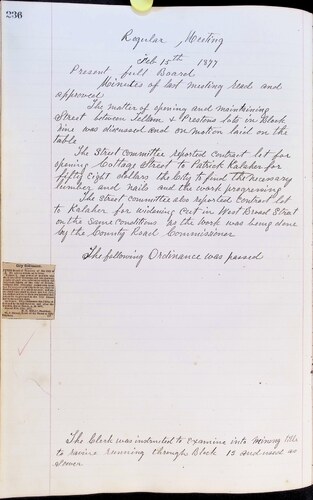 236
Regular Meeting
Feb 15th 1877
Present full Board
Minutes of last meeting read and
approved
The matter of opening and maintaining
Street between Tellam & Prestons lots in Block
Nine was discussed and on motion laid on the
table
The Street Committee reported contract let for
opening Cottage Street to Patrick Kalaher for
fifty eight dollars the City to find the necessary
lumber and nails and the work progressing
The street committee also reported Contract let
to Kalaher for widening Cut in West Broad Street
on the same conditions as the work was being done
by the County Road Commissioner
The following Ordinance was passed
The Clerk was instructed to examine into Mining
to ravine running through Block 15 and used as
Sewer